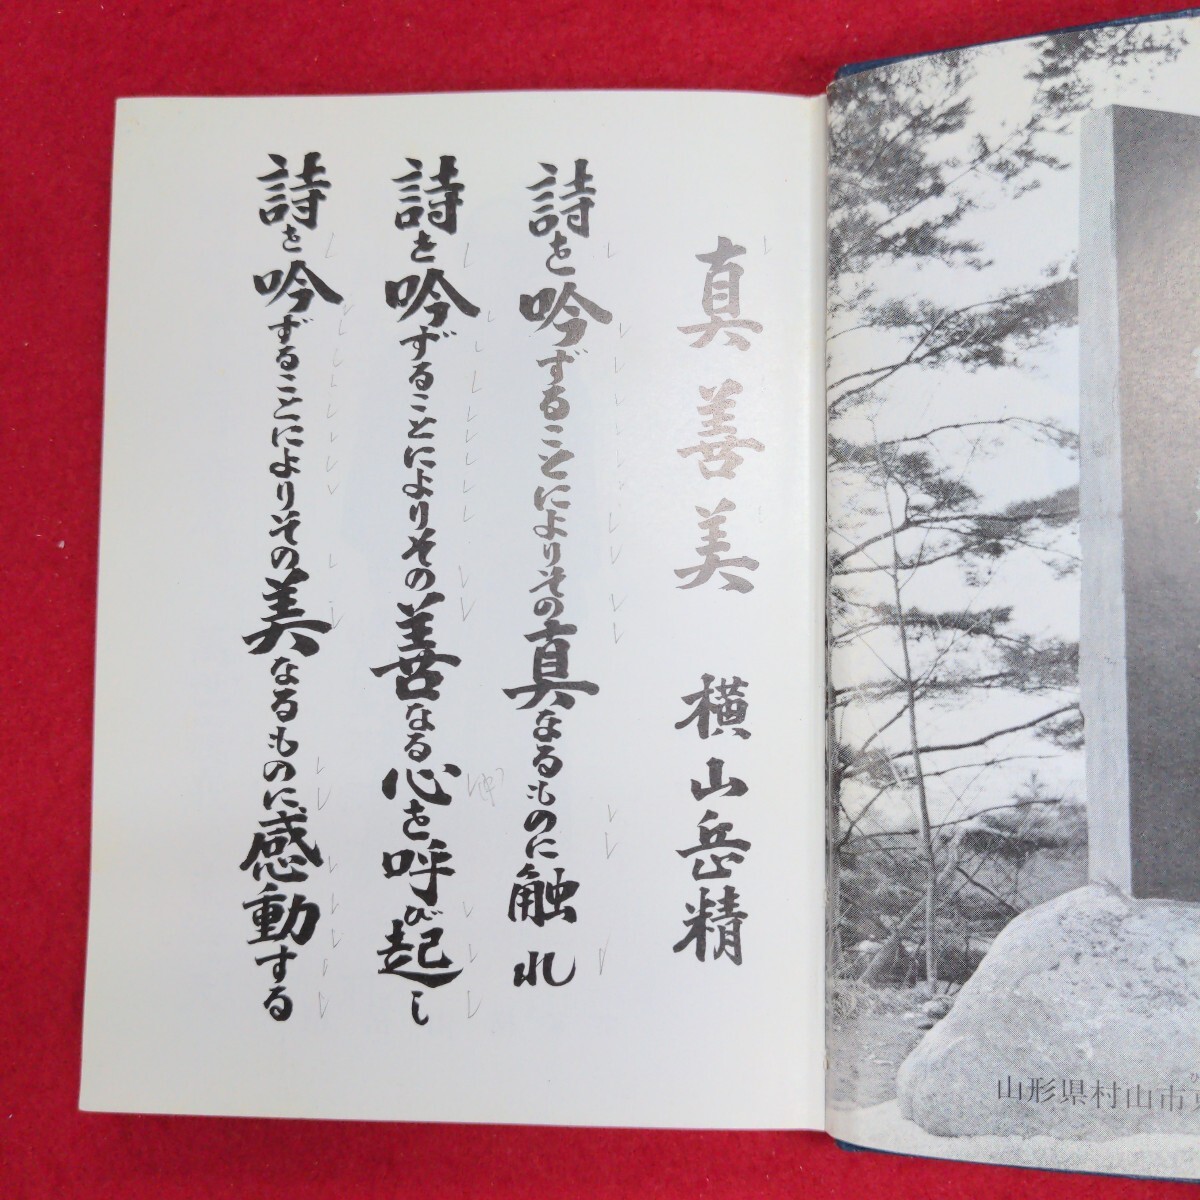 真善美 横山岳精
詩を吟ずることによりその真なるものに触れ
詩を吟ずることによりその善なる心を呼び起し
詩を吟ずることによりその美なるものに感動する
山形県村山市